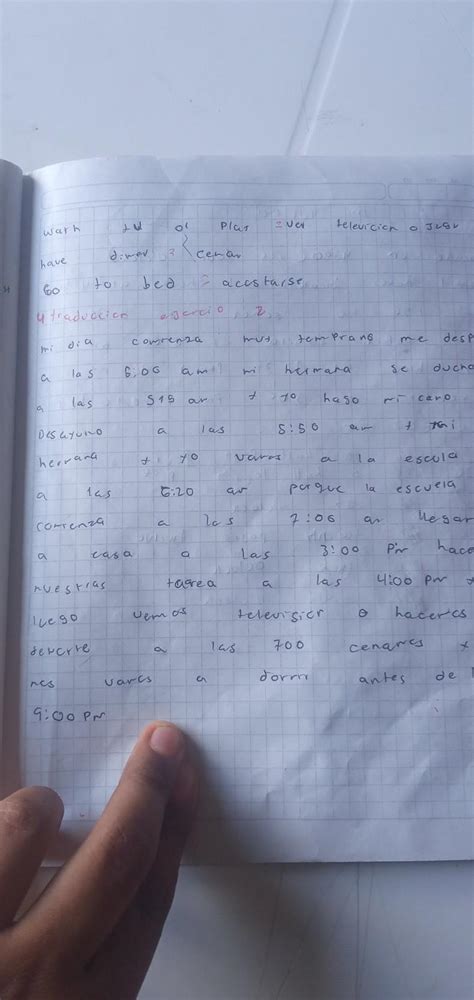 warh tv or Plas = ver televicion o Jugu
have diner = cenar
Go to bed = acostarse
4 traduccion ejercio 2
mi dia comienza muy temprano me desp
a las 6:06 am mi hermana se ducha
a las 515 am y yo haso mi camo
Desayuno a las 5:50 am y mi
hermana y yo vamos a la escula
a las 6:20 am porque la escuela
comienza a las 7:06 am llegar
a casa a las 3:00 Pm hace
nuestras tarea a las 4:00 pm y
luego vemos television o hacemos
deporte a las 700 cenames y
nes vames a dormi antes de l
9:00 Pm